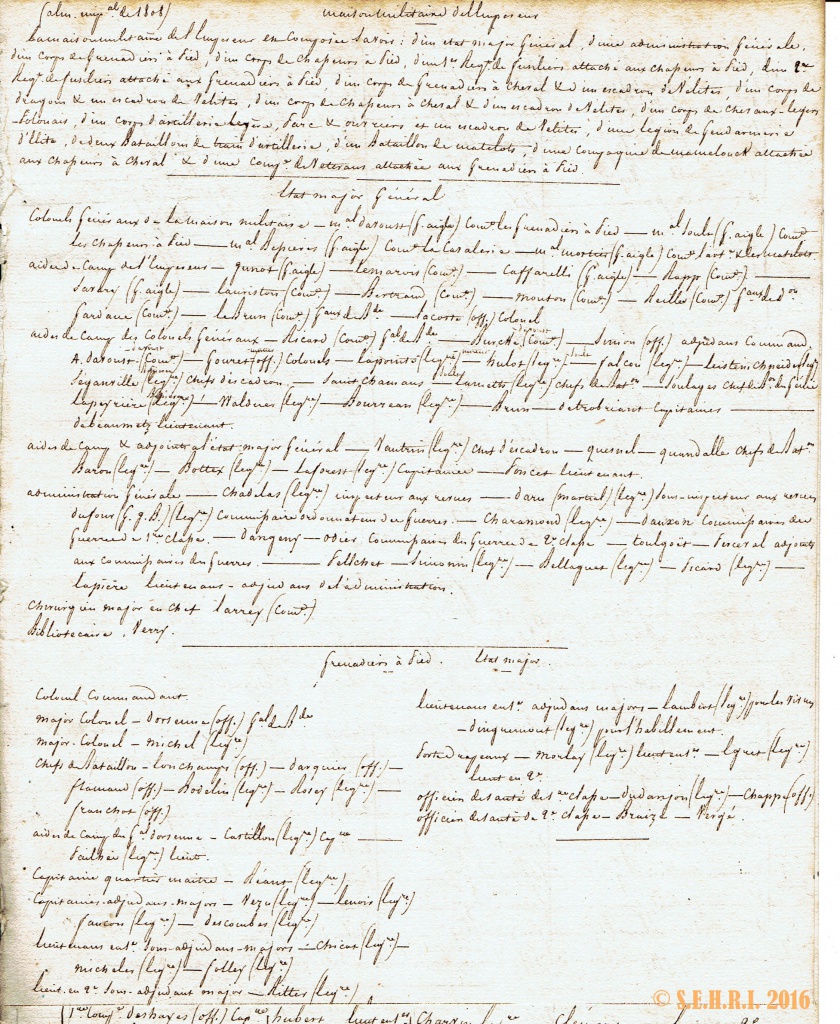 (alm. imp.al de 1808) maison militaire de l'Empereur
La maison militaire de l'Empereur est composée savoir: d'un état major Général, d'une administration Générale,
d'un corps de Grenadiers à Pied, d'un corps de Chasseurs à Pied, d'un 1er Regt. de fusiliers attaché aux Chasseurs à Pied, d'un 2e
Regt. de fusiliers attaché aux Grenadiers à Pied, d'un corps de Grenadiers à Cheval & d'un escadron de Vélites, d'un corps de
dragons & un escadron de Vélites, d'un corps de Chasseurs à Cheval & d'un escadron de Vélites, d'un corps de Chevaux-legers
Polonais, d'un corps d'artillerie légère, Parc & ouvriers et un escadron de Velites, d'une legion de Gendarmerie
d'Elite, de deux Bataillons de train d'artillerie, d'un Bataillon de matelots, d'une compagnie de mamelouck attachée
aux Chasseurs à Cheval & d'une comp.e de Veterans attachée aux Grenadiers à Pied.
Etat major Général
Colonels Généraux de la maison militaire - m.al davoust (g. aigle) Com.t les Grenadiers à Pied - m.al Soult (g. aigle) Com.t
les Chasseurs à Pied - m.al Bessieres (g. aigle) Com.t la Cavalerie - m.al mortier (g. aigle) Com.t l'art.ie & les matelots
aides de Camp de l'Empereur - Junot (g. aigle) - lemarois (Com.t) - Caffarelli (g. aigle) - Rapp (Com.t)
Savary (g. aigle) - lauriston (Com.t) - Bertrand (Com.t) - mouton (Com.t) - Reille (Com.t) G.aux de d.on
Gardane (Com.t) - le Brun (Com.t) G.aux de B.de - lacoste (off.) Colonel
aides de camp des Colonels Généraux - Ricard (Com.t) G.al de B.de - Burcke (Com.t) davoust - Simon (off.) adjudans command.
A. davoust (Com.t) davoust - Gouré (off.) mortier Colonels - lapointe (leg.re) mortier - hulot (leg.re) Soult - falcon (leg.re) - leistenschneider (leg.re)
Seganville (leg.re) chefs d'escadron - Saint Chamans - lameth (leg.re) chefs de Bat.on - Soulages chef de B.on du Génie
lapeyrière (leg.re) - Waldner (leg.re) - Bourreau (leg.re) - Brun - de trobriant Capitaines
de beaumetz lieutenant.
aides de Camp & adjoints à l'état major Général - Vautrin (leg.re) chef d'escadron - quesnel - quandalle chefs de Bat.on
Baron (leg.re) - Bottex (leg.re) - laforest (leg.re) Capitaines - Poncet lieutenant.
administration Générale - Chadelas (leg.re) inspecteur aux revues - daru (martial) (leg.re) Sous-inspecteur aux revues
dufour (f. g. B.) (leg.re) Commissaire ordonnateur des Guerres - Charamond (leg.re) - dauxon Commissaires des
Guerres de 1ere classe - dangeny - odier Commissaires des Guerres de 2e classe - toulgoët - Perceval adjoints
aux commissaires des Guerres. - Pellchet - Simonin (leg.re) - Bellaguet (leg.re) - Picard (leg.re)
lapierre lieutenans-adjudans de l'administration.
Chirurgien major en chef larrey (Com.t)
Bibliotecaire, Verry.
Grenadiers à Pied. Etat major.
Colonel Commandant.
major Colonel - dorsenne (off.) G.al de B.de
major-Colonel - michel (leg.re)
Chefs de Bataillon - lonchamps (off.) - darquier (off.)
flamand (off.) - Bodelin (leg.re) - Rosey (leg.re)
franchot (off.)
aides de camp du G.al dorsenne - Castillon (leg.re) Cap.ne
Pailhès (leg.re) lieut.
Capitaine quartier maitre - Réant (leg.re)
Capitaines adjudans-majors - Vezu (leg.re) - lenoir (leg.re)
faucon (leg.re) - descombes (leg.re)
lieutenans en 1er Sous-adjudans-majors - Chicot (leg.re)
micheler (leg.re) - folley (leg.re)
lieut. en 2e Sous-adjudant major - Ritter (leg.re)
lieutenans en 1er adjudans majors - lambert (leg.re) pour les vivres
- dinquemont (leg.re) pour l'habillement.
Portedrapeaux - morlay (leg.re) lieut en 1er - lyuet (leg.re)
lieut en 2e.
officiers de santé de 1ere classe - dudanjon (leg.re) - Chappe (off.)
officiers de santé de 2e classe - Braise - Vergé.
1ere Comp.e deshayes (off.) Cap.ne hubert lieut en 1er Charvin
© S.E.H.R.I. 2016